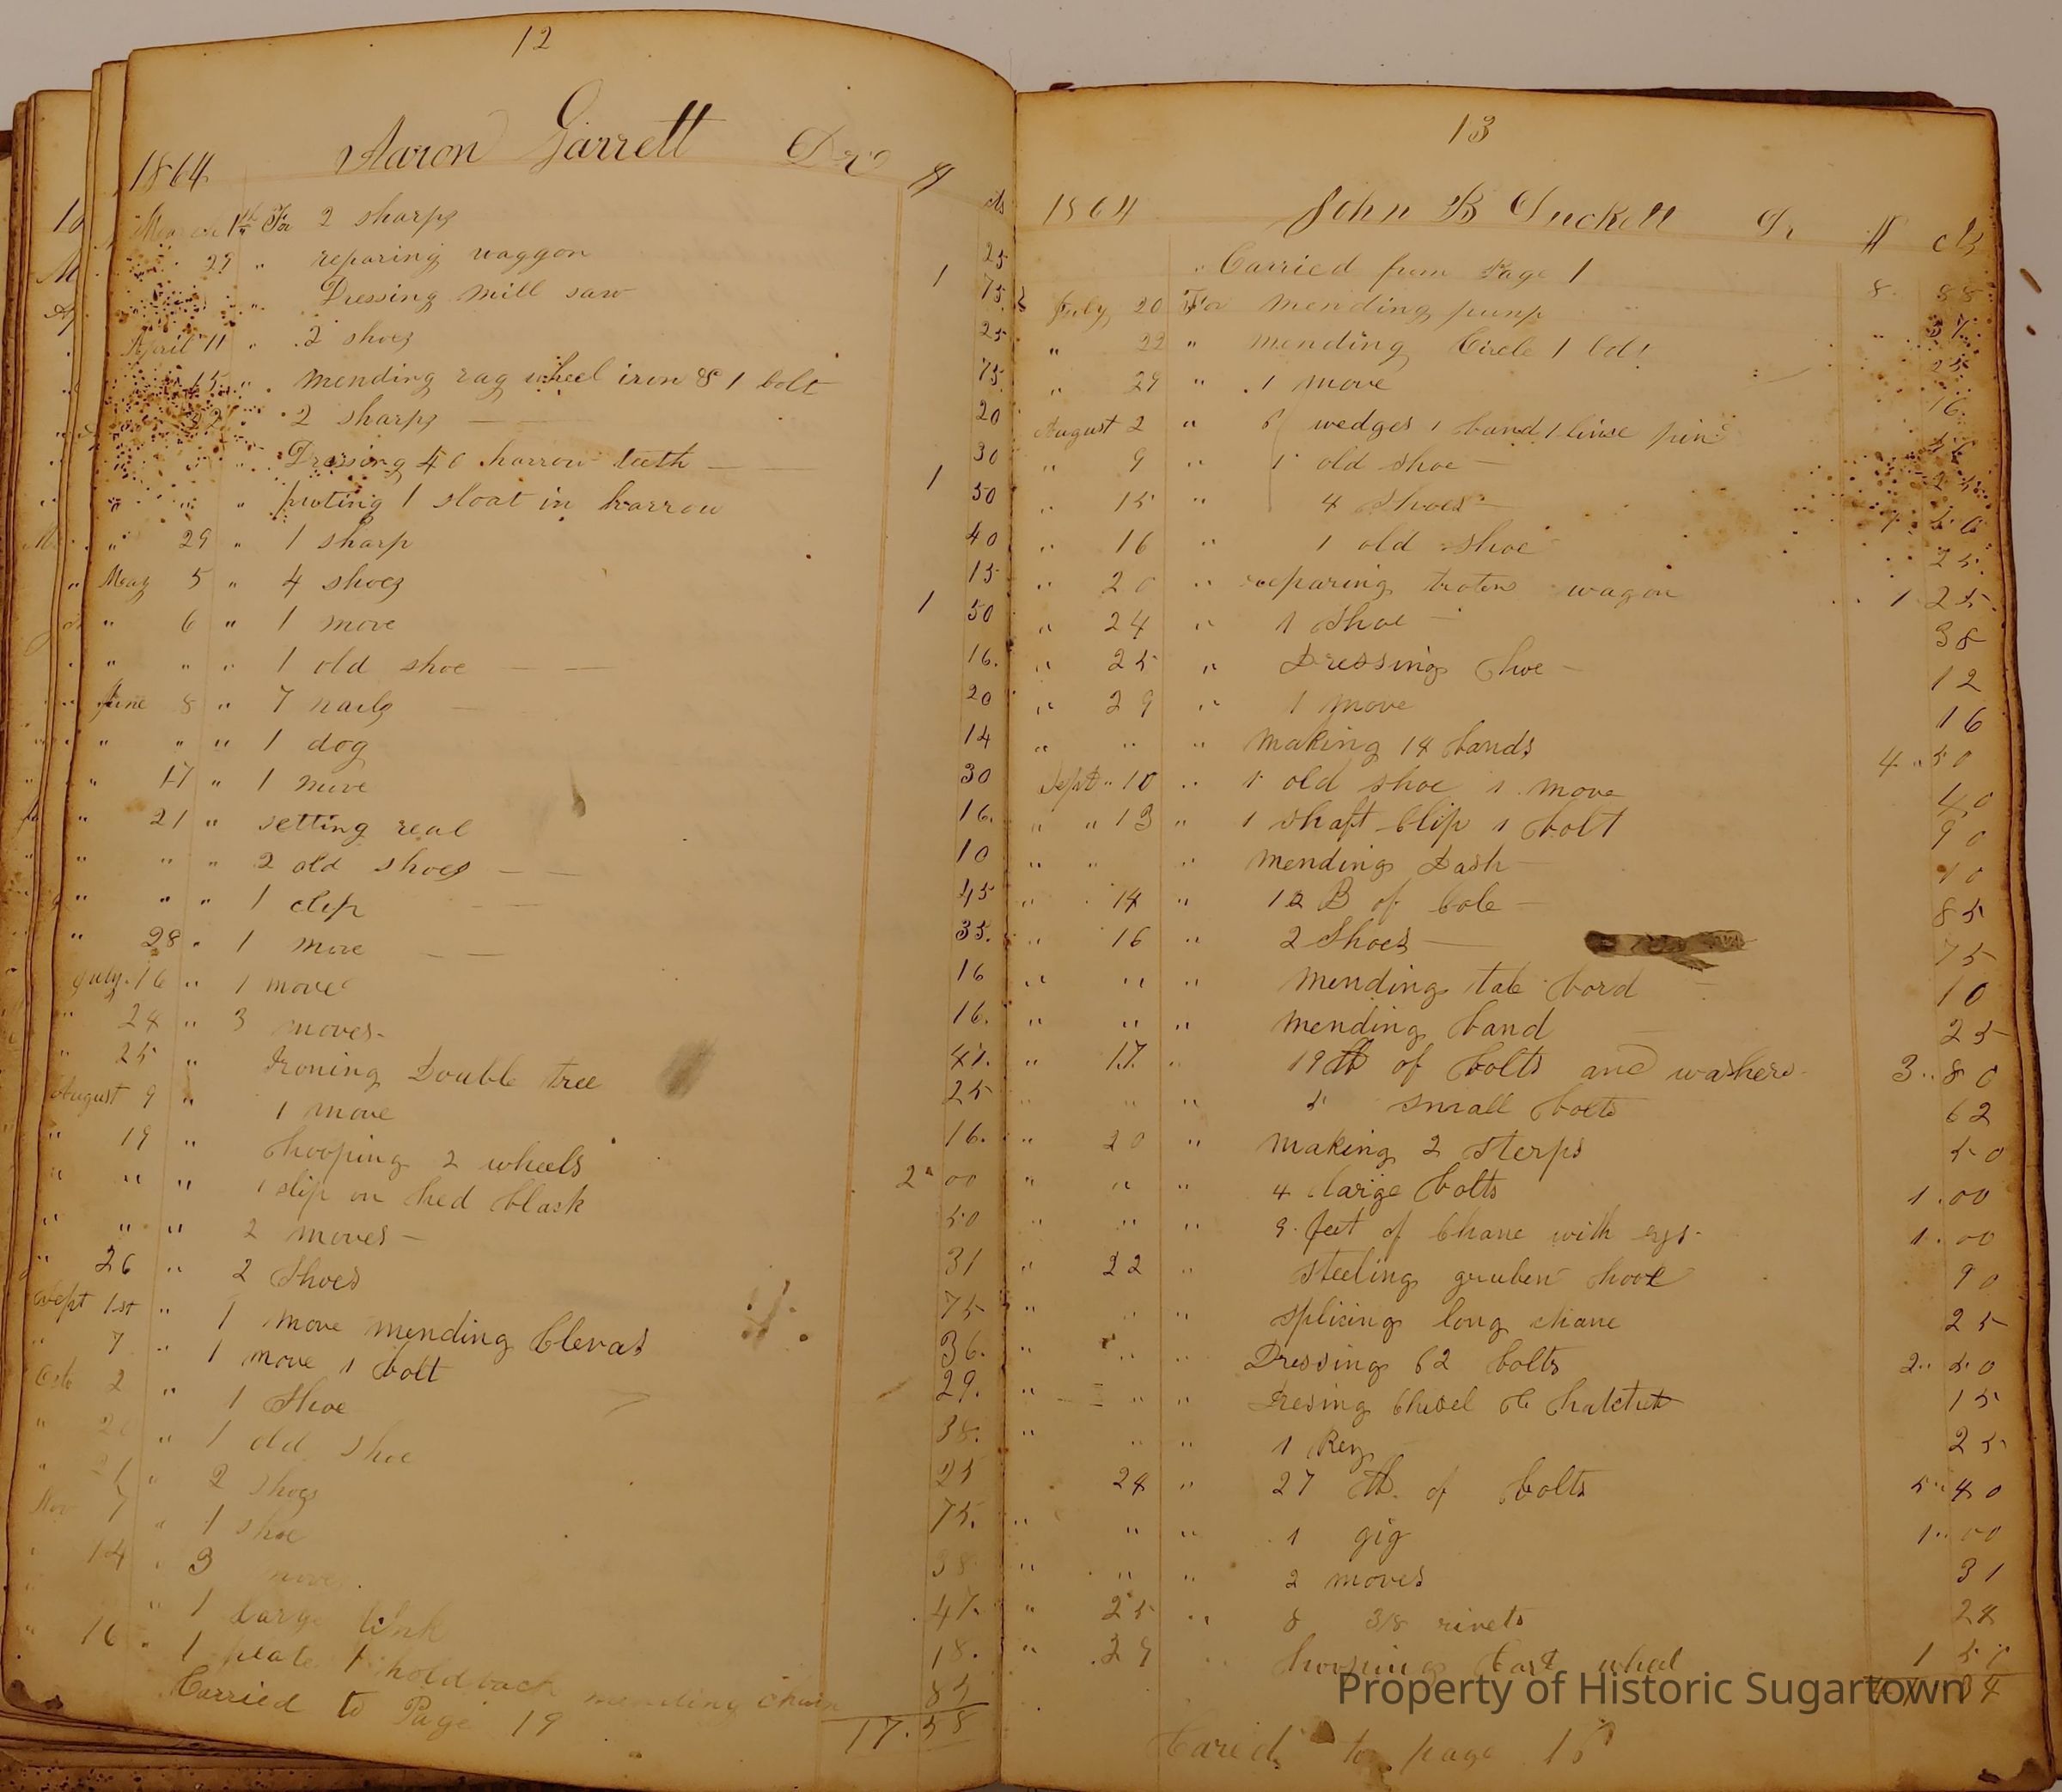 12
Aaron Garrett Dr
1864 $ cts
March 1st For 2 sharps 25
" 29 " reparing waggon 1 75
" " Dressing mill saw 25
April 11 " 2 shoes 75
" 15 " mending rag wheel iron & 1 bolt 20
" 22 " 2 sharps 30
" " " Dressing 40 harrow teeth 1 50
" " " puting 1 sloat in harrow 40
" 29 " 1 sharp 15
May 5 " 4 shoes 1 50
" 6 " 1 move 16.
" " " 1 old shoe 20
June 8 " 7 nails 14
" " " 1 dog 30
" 17 " 1 move 16.
" 21 " setting real 10
" " " 2 old shoes 45
" " " 1 clip 35.
" 28 " 1 move 16
July 16 " 1 move 16.
" 24 " 3 moves 47.
" 25 " Ironing Double tree 25
August 9 " 1 move 16.
" 19 " hooping 2 wheels 2" 00
" " " 1 slip on hed black 50
" " " 2 moves 31
" 26 " 2 Shoes 75
Sept 1st " 1 move mending Clevas 36.
" 7 " 1 move 1 bolt 29.
Octo 2 " 1 Shoe 38.
" " 1 old shoe 25
" " 2 shoes 75.
Nov 7 " 1 shoe 38
" 14 " 3 moves. 47.
" " 1 large link 18.
" 16 " 1 plate 1 holdback mending chain 85
Carried to Page 19 17.58
13
1864 John B Duckett Dr $ cts
" Carried frum Page 1 8. 88
July 20 For mending pump 37.
" 22 " mending Circle 1 bolt 25
" 29 " 1 move 16.
August 2 " 6 wedges 1 band 1 linse pin
" 9 " 1 old shoe 25
" 15 " 4 Shoes 1 50
" 16 " 1 old shoe 25.
" 20 " reparing troten wagon 1 25.
" 24 " 1 Shoe 38
" 25 " Dressing Shoe 12
" 29 " 1 move 16
" " " making 18 bands 4 " 50
Sept " 10 " 1 old shoe 1 move 40
" " 13 " 1 shaft Clip 1 bolt 90
" " " mending Dash 10
" 14 " 12 B of Cole 85
" 16 " 2 Shoes 75
" " " mending tale bord 10
" " " mending band 25
" 17. " 19 lb of bolts and washers 3 " 80
" " " 5 small bolts 62
" 20 " making 2 sterps 50
" " " 4 large bolts 1 . 00
" " " 9 feet of Chane with eys 1 . 00
" 22 " steeling gruben hooe 90
" " " splicing long chane 25
" " " Dressing 62 bolts 2 " 50
" " " Dresing Chisel & hatchet 15
" " " 1 Key 25
24 " 27 lb. of bolts 5 " 40
" " " 1 gig 1 " 00
" " " 2 moves 31
" 25 " 8 3/8 rivets 24
" 29 " hooping Cart wheel 1 50
Caried to page
Property of Historic Sugartown